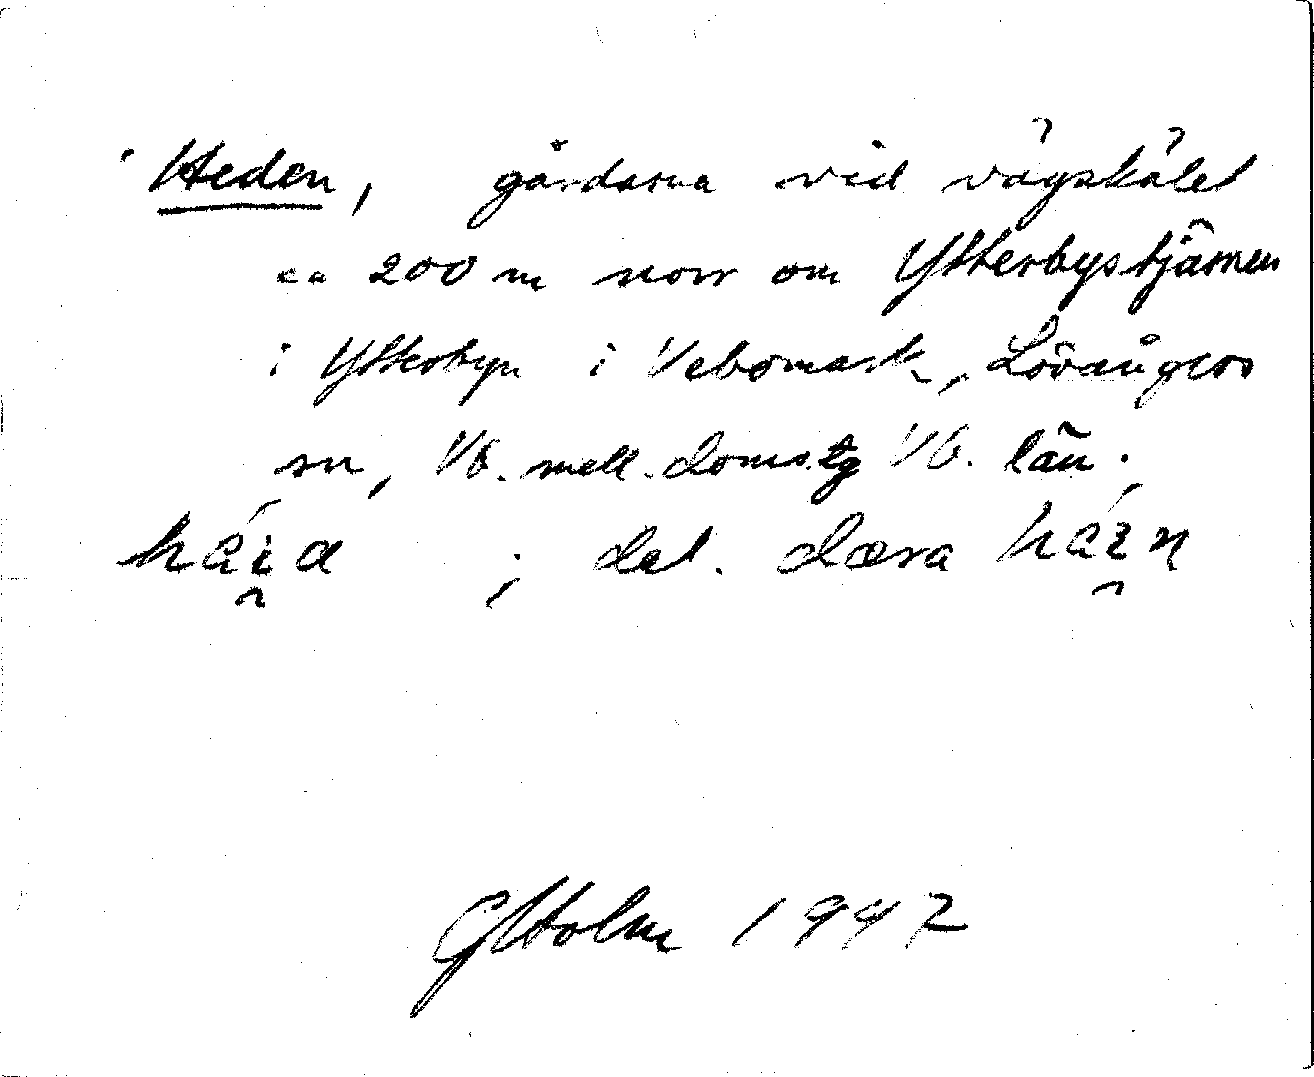 Heden, gårdarna vid vägskälet
ca 200 m norr om Ytterbystjärnen
i Ytterbyn i Vebomark, Lövångers
sn, Vb. mell. doms.tg Vb. län.
; dat. dæra
GHolm 1947